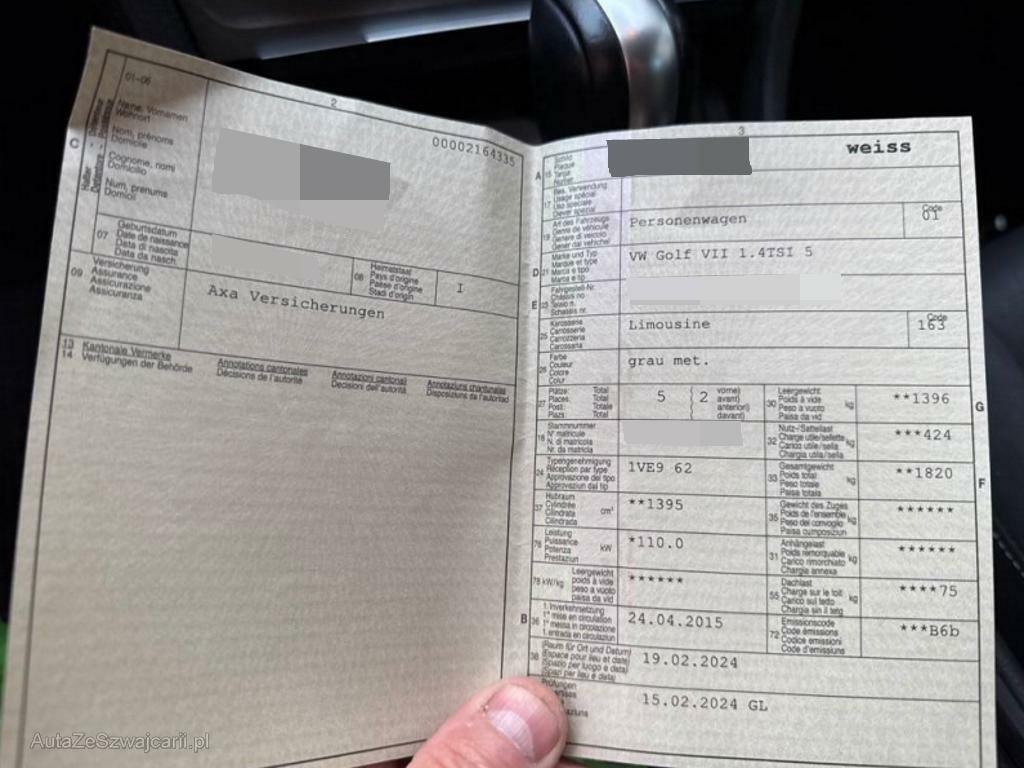 2
01-06
00002164335
C
Halter
Name, Vornamen
Wohnort
Nom, prénoms
Domicile
Cognome, nomi
Domicilio
Num, prenums
Domicil
07
Geburtsdatum
Date de naissance
Data di nascita
Data da nasch.
08
Heimatstaat
Pays d'origine
Paese d'origine
Stadi d'origin
I
09
Versicherung
Assurance
Assicurazione
Assicuranza
Axa Versicherungen
13 Kantonale Vermerke
14 Verfügungen der Behörde
Annotations cantonales
Décisions de l'autorité
Annotazioni cantonali
Decisioni dell'autorità
Annotaziuns chantunalas
Disposiziuns da l'autoritad
3
A 15
Schild
Plaque
Targa
Numer
weiss
17
Bes. Verwendung
Usage spécial
Uso speciale
Diever spezial
19
Art des Fahrzeugs
Genre de véhicule
Genere di veicolo
Gener dal vehichel
Personenwagen
Code
01
D 21
Marke und Typ
Marque et type
Marca e tipo
Marca e tip
VW Golf VII 1.4TSI 5
E 23
Fahrgestell-Nr.
Châssis no
Telaio n.
Schassis nr.
25
Karosserie
Carrosserie
Carrozzeria
Carossaria
Limousine
Code
163
26
Farbe
Couleur
Colore
Colur
grau met.
27
Plätze: Total
Places: Total
Posti: Totale
Plazs: Total
5 ( 2
vorne)
avant)
anteriori)
davant)
30
Leergewicht
Poids à vide
Peso a vuoto
Paisa da vid
kg
**1396
G
18
Stammnummer
N° matricule
N. di matricola
Nr. da matricla
32
Nutz-/Sattellast
Charge utile/sellette
Carico utile/sella
Chargia utila/sella
kg
***424
24
Typengenehmigung
Réception par type
Approvazione del tipo
Approvaziun dal tip
1VE9 62
33
Gesamtgewicht
Poids total
Peso totale
Paisa totala
kg
**1820
F
37
Hubraum
Cylindrée
Cilindrata
Cilindrada
cm³
**1395
35
Gewicht des Zuges
Poids de l'ensemble
Peso del convoglio
Paisa cumposiziun
kg
******
76
Leistung
Puissance
Potenza
Prestaziun
kW
*110.0
31
Anhängelast
Poids remorquable
Carico rimorchiato
Chargia annexa
kg
******
78 kW/kg
Leergewicht
poids à vide
peso a vuoto
paisa da vid
******
55
Dachlast
Charge sur le toit
Carico sul tetto
Chargia sin il tetg
kg
****75
B 36
1. Inverkehrsetzung
1re mise en circulation
1a messa in circolazione
1. entrada en circulaziun
24.04.2015
72
Emissionscode
Code émissions
Codice emissioni
Code d'emissiuns
***B6b
38
(Raum für Ort und Datum)
(Espace pour lieu et date)
(Spazio per luogo e data)
(Spazi per lieu e data)
19.02.2024
Prüfungen
15.02.2024 GL
AutaZeSzwajcarii.pl